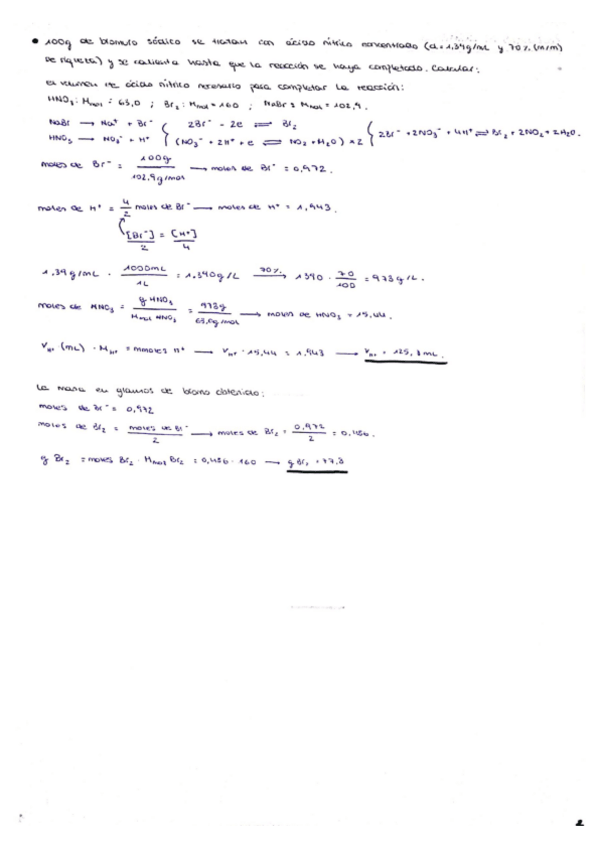 • 100g de bromuro sódico se tratan con ácido nítrico concentrado (d=1.39g/mL y 70% (m/m)
de riqueza) y se calienta hasta que la reacción se haya completado. Calcular:
el volumen de ácido nítrico necesario para completar la reacción:
HNO₃: Mmol = 63,0 ; Br₂: Mmol = 160 ; NaBr: Mmol = 102,9.
NaBr → Na⁺ + Br⁻ { 2Br⁻ - 2e ⇌ Br₂ { 2Br⁻ + 2NO₃⁻ + 4H⁺ ⇌ Br₂ + 2NO₂ + 2H₂O.
HNO₃ → NO₃⁻ + H⁺ { (NO₃⁻ + 2H⁺ + e ⇌ NO₂ + H₂O) x 2
moles de Br⁻ = 100g / 102,9g/mol → moles de Br⁻ = 0,972.
moles de H⁺ = 4/2 moles de Br⁻ → moles de H⁺ = 1,943.
[Br⁻]/2 = [H⁺]/4
1,39g/mL · 1000mL/1L = 1.390g/L 70%→ 1390 · 70/100 = 973g/L.
moles de HNO₃ = g HNO₃ / Mmol HNO₃ = 973g / 63,0g/mol → moles de HNO₃ = 15,44.
V H⁺ (mL) · M H⁺ = mmoles H⁺ → V H⁺ · 15,44 = 1,943 → V H⁺ = 125,8 mL.
La masa en gramos de bromo obtenido:
moles de Br⁻ = 0,972
moles de Br₂ = moles de Br⁻ / 2 → moles de Br₂ = 0,972 / 2 = 0,486.
g Br₂ = moles Br₂ · Mmol Br₂ = 0,486 · 160 → g Br₂ = 77,8